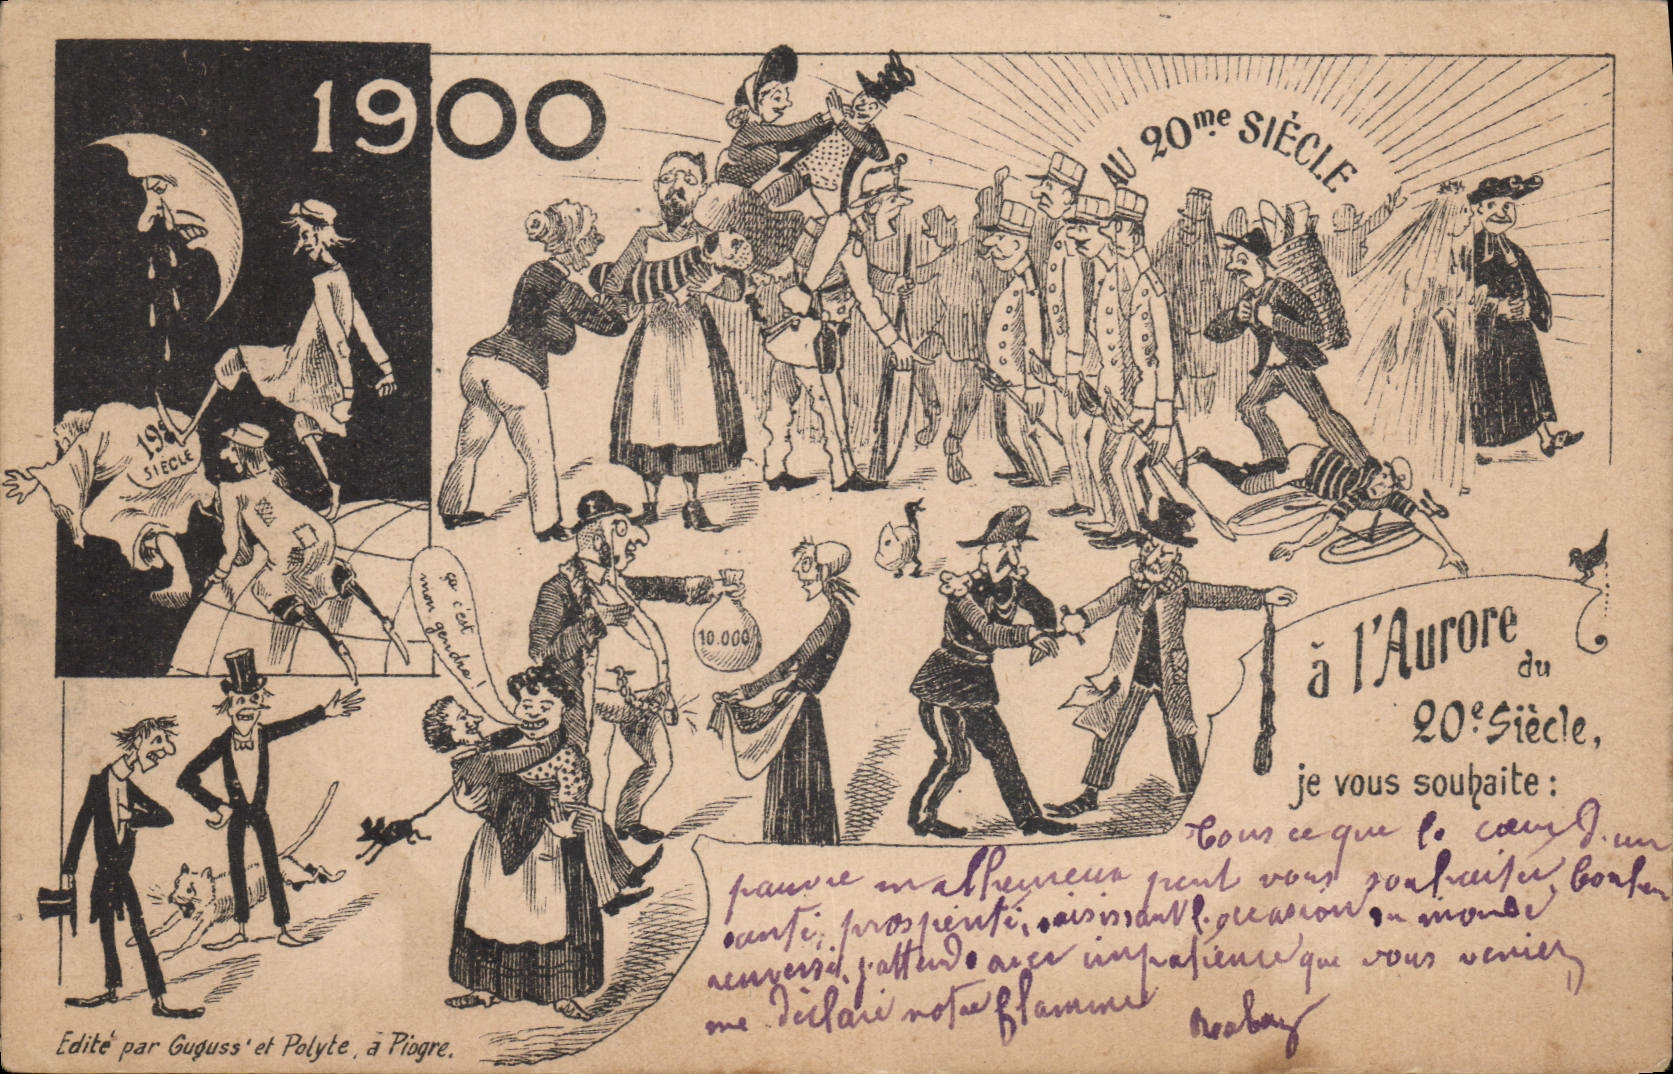 1900
AU 20me SIÈCLE
19e
SIECLE
ça c'est
mon gendre!
10.000
à l'Aurore
du
20e Siècle,
je vous souhaite:
Tous ce que le cœur d'un
pauvre malheureux peut vous souhaiter, bonheur
santé, prospérité, saisissant l'occasion du monde
renversé, j'attends avec impatience que vous veniez
me déclaré votre flamme
Edité par Guguss' et Polyte, à Piogre.